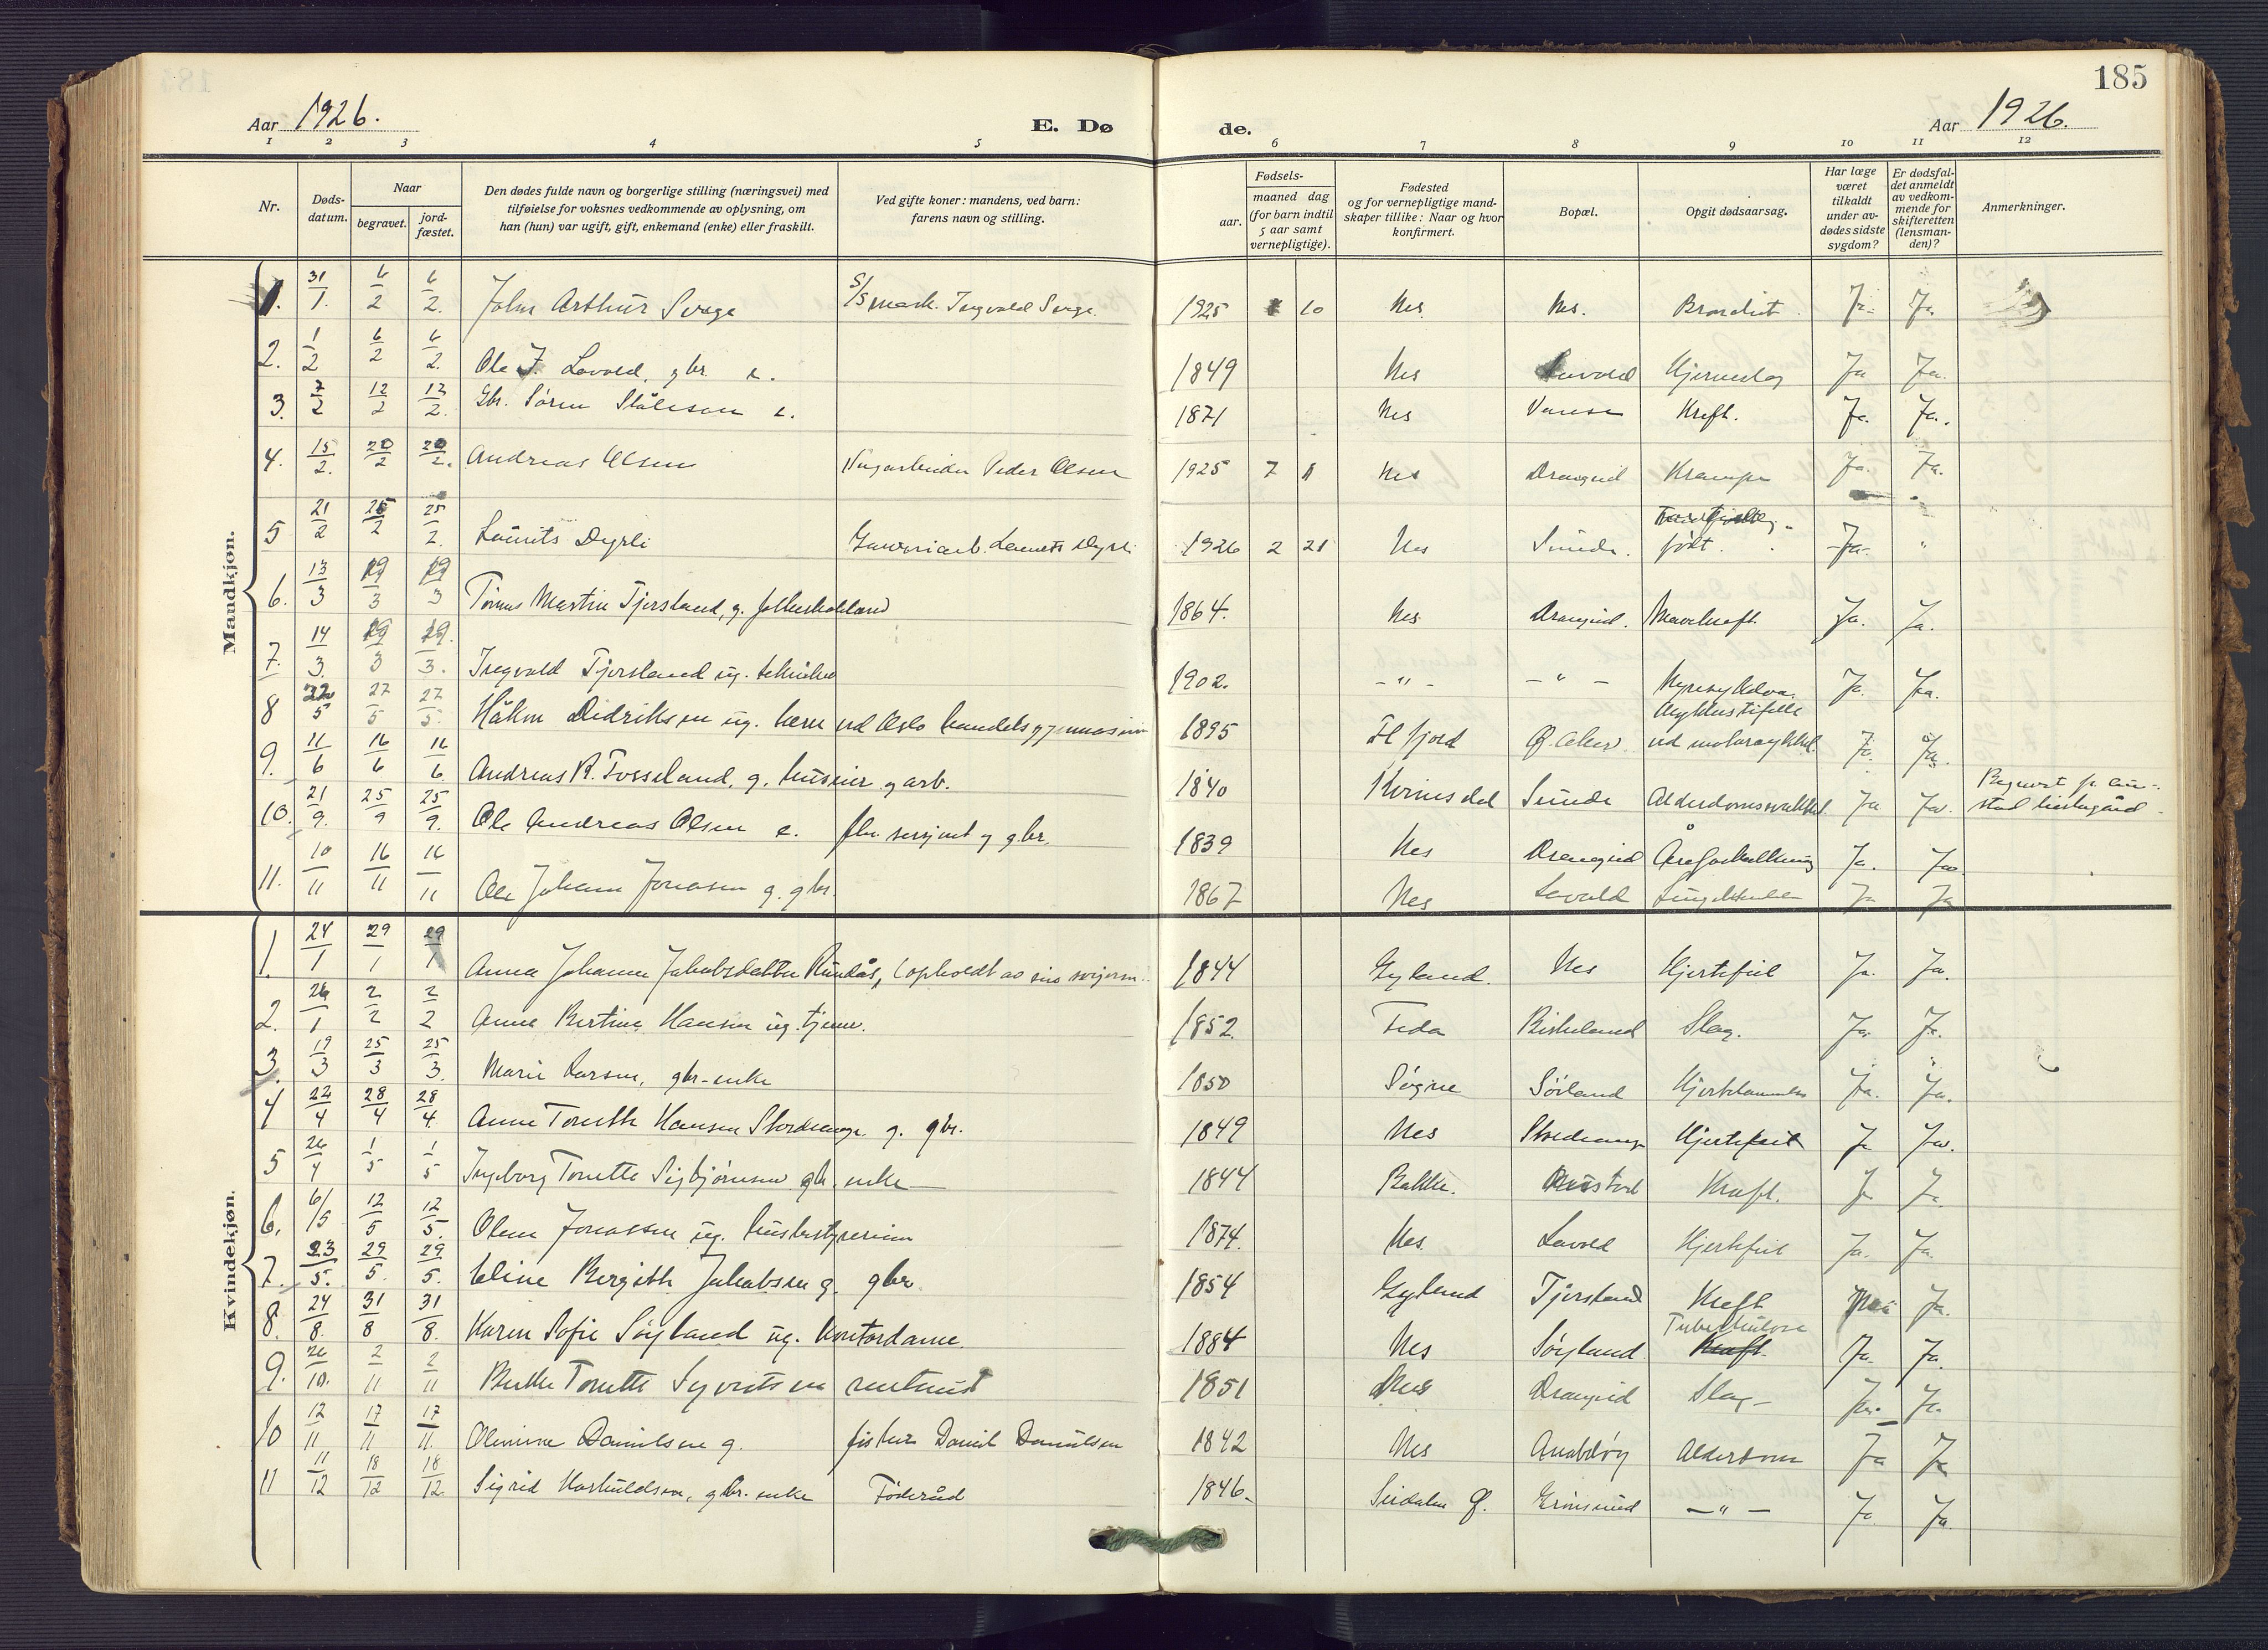 185
Aar 1926.
E. Dø
de.
Aar 1926.
1 2 3 4 5 6 7 8 9 10 11 12
Nr.
Døds-
datum.
Naar
begravet.
jord-
fæstet.
Den dødes fulde navn og borgerlige stilling (næringsvei) med
tilføielse for voksnes vedkommende av oplysning, om
han (hun) var ugift, gift, enkemand (enke) eller fraskilt.
Ved gifte koner: mandens, ved barn:
farens navn og stilling.
Fødsels-
aar.
maaned dag
(for barn indtil
5 aar samt
vernepligtige).
Fødested
og for vernepligtige mand-
skaper tillike: Naar og hvor
konfirmert.
Bopæl.
Opgit dødsaarsag.
Har læge
været
tilkaldt
under av-
dødes sidste
sygdom?
Er dødsfal-
det anmeldt
av vedkom-
mende for
skifteretten
(lensman-
den)?
Anmerkninger.
Mandkjøn.
1. 31/1. 6/2 6/2. John Arthur Svege S/S mask. Ingvald Svege. 1925 10 Nes Nes. Ja. Ja.
2. 1/2 6/2 6/2. Ole F. Lavold, gbr. e. 1849 Nes Lavold Hjerneslag Ja Ja.
3. 7/2 12/2 12/2. Gbr. Søren Ståleson e. 1871 Nes Vanse Kreft. Ja. Ja.
4. 15/2. 20/2 20/2. Andreas Olsen Peder Olsen 1925 7 Nes Drangeid Krampe Ja. Ja.
5 21/2 25/2 25/2. Laurits Dyrli Laurits Dyrli 1926 2 21 Nes Sunde. født. Ja. "
6. 13/3 19/3 19/3 Tønnes Martin Tjørsland, g. 1864. Nes Drangeid. Mavekreft Ja. Ja.
7. 14/3. 19/3 19/3. Ingvald Tjørsland ug. tekniker 1902. - " - - " - Nyresykdom Ja. Ja.
8 22/5 27/5 27/5. Håkon Didriksen ug. lærer ved Oslo handelsgymnasium 1895 Flfjord Ø. Aker. Ulykkestifelle
ved motorsykkel. Ja. Ja.
9. 11/6 16/6 16/6. Andreas R. Fosseland, g. huseier og arb. 1840 Kvinesdal Sunde Alderdomssvakhet Ja Ja. Begravet på
10. 21/9. 25/9 25/9. Ole Andreas Olsen e. fhv. sersjant og gbr. 1839 Nes Drangeid Åreforkalkning Ja. Ja.
11. 10/11 16/11 16/11 Ole Johan Jonasen g. gbr. 1867 Nes Lavold Ja Ja
Kvindekjøn.
1. 24/1 29/1 29/1 Anna Johanne Jakobsdatter Rundås, (opholdt av sin svigersøn 1844 Gyland. Nes Hjertefeil Ja. Ja.
2. 26/1 2/2 2/2 Anna Bertine Hansen ug. tjener. 1852. Feda Birkeland Slag. Ja. Ja.
3. 19/3 25/3 25/3. Marie Larsen, gbr-enke 1850 Søgne Søiland Hjertelammelse Ja. Ja.
4 22/4 28/4 28/4. Anne Tonette Hansen Stordrange g. gbr. 1849 Nes Stordrange Hjertefeil Ja Ja.
5 26/4 1/5 1/5 Ingeborg Tonette Sigbjørnsen gbr. enke 1844 Bakke. Austad Kreft. Ja Ja.
6. 6/5 12/5 12/5. Olene Jonassen ug. husbestyrerinne 1874. Nes. Lavold Hjertefeil Ja. Ja.
7. 23/5. 29/5. 29/5. Eline Bergitte Jakobsen g. gbr. 1854 Gyland Tjørsland Kreft Nei Ja.
8. 24/8. 31/8 31/8. Karen Sofie Søyland ug. Kontordame. 1884 Nes Søyland Tuberkulose
Kreft Ja. Ja.
9. 26/10. 2/11 2/11 Berthe Tonette Syvertsen 1851 Nes Drangeid Slag Ja. Ja.
10 12/11 17/11 17/11. Olemine Danielsen g. fisker Daniel Danielsen 1842 Nes Anabeløy Alderdom Ja Ja
11 11/12 18/12 18/12. Sigrid Haskuldsen, gbr. enke Føderåd 1846. Sirdalen Ø. Grønsund - " - Ja Ja.